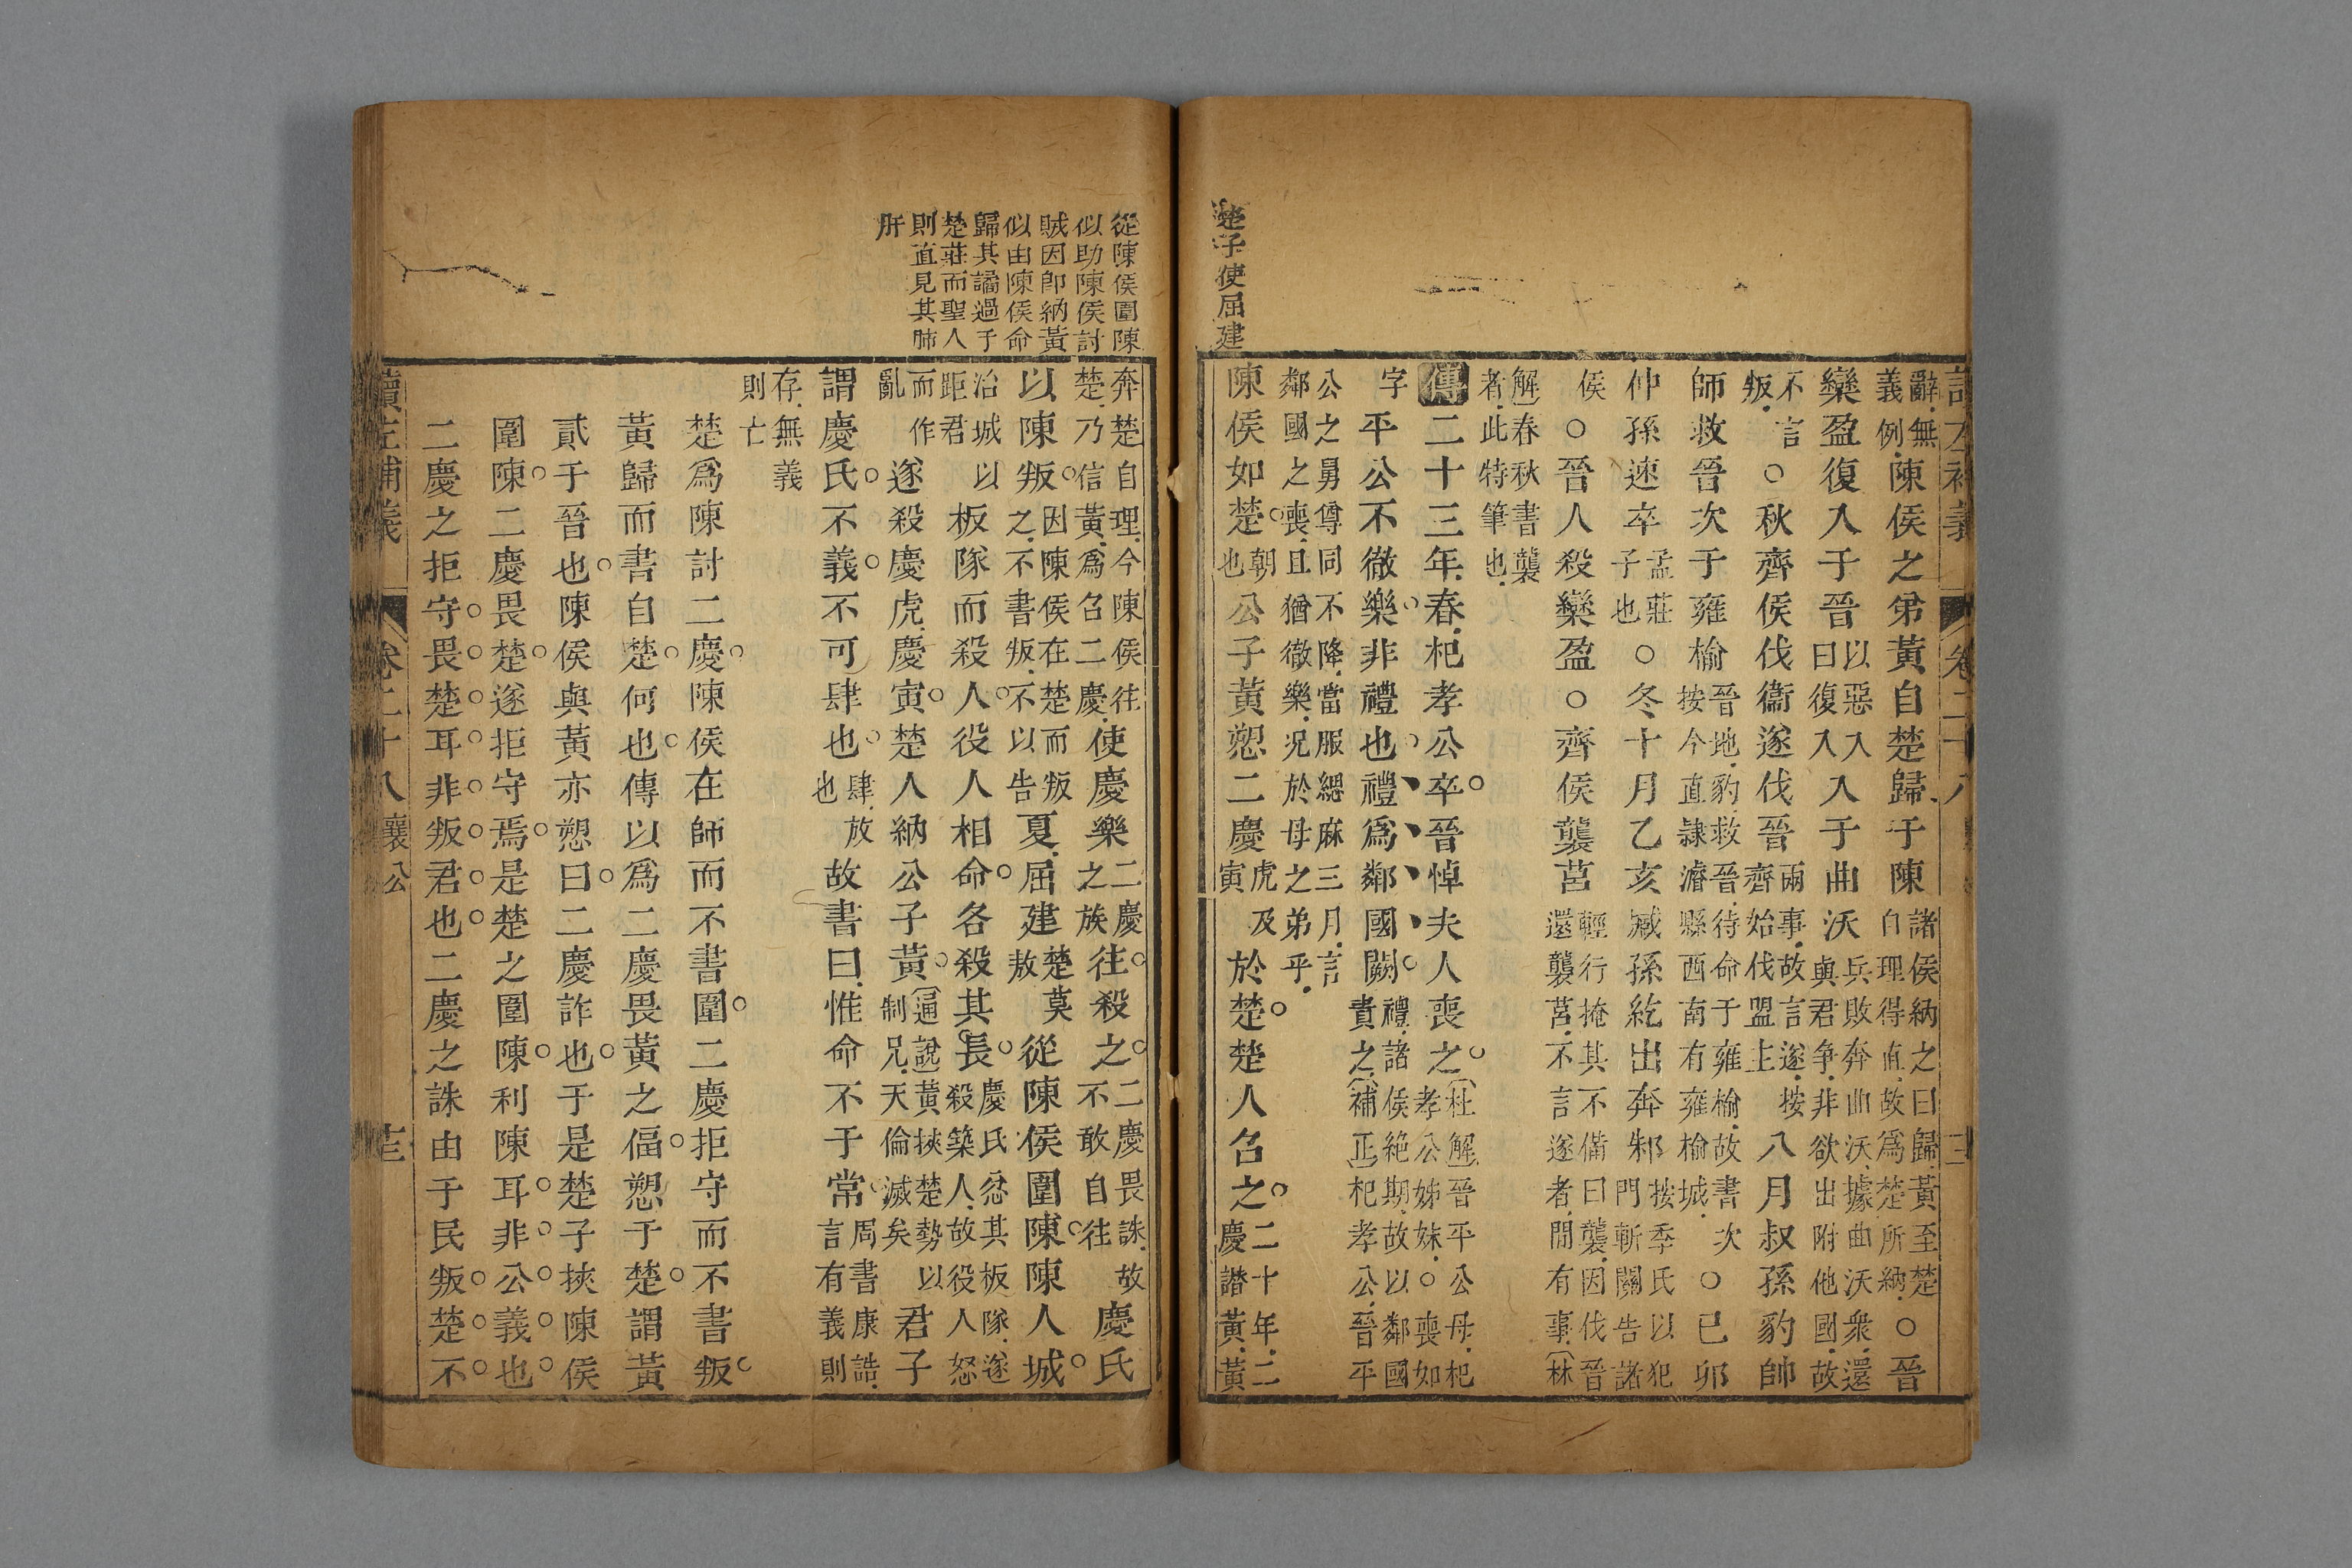 讀左補義 卷二十八
辭無義例陳侯之弟黃自楚歸于陳諸侯納之曰歸黃至楚自理得直故為楚所納○晉
欒盈復入于晉以惡入曰復入入于曲沃兵敗奔曲沃據曲沃衆還與君爭非欲出附他國故
不言叛○秋齊侯伐衞遂伐晉兩事故言遂按齊始伐盟主八月叔孫豹帥
師救晉次于雍榆晉地豹救晉待命于雍榆故書次按今直隷濬縣西南有雍榆城○已卯
仲孫速卒孟莊子也○冬十月乙亥臧孫紇出奔邾按季氏以犯門斬關告諸
侯○晉人殺欒盈○齊侯襲莒輕行掩其不備曰襲因伐晉還襲莒不言遂者間有事林
解春秋書襲者此特筆也
傳二十三年春杞孝公卒晉悼夫人喪之杜解晉平公母杞孝公姊妹○喪如
字平公不徹樂非禮也禮為鄰國闕禮諸侯絕期故以鄰國責之補正杞孝公晉平
公之舅尊同不降當服緦麻三月言鄰國之喪且猶徹樂況於母之弟乎
陳侯如楚朝也公子黃愬二慶虎及寅於楚楚人召之二十年二慶譖黃黃
楚子使屈建
從陳侯圍陳
似助陳侯討
賊因卽納黃
似由陳侯命
歸其譎過于
楚莊而聖人
則直見其肺
肝
奔楚自理今陳侯往楚乃信黃為召二慶使慶樂二慶之族往殺之二慶畏誅故不敢自往慶氏
以陳叛因陳侯在楚而叛之不書叛不以告夏屈建楚莫敖從陳侯圍陳陳人城
治城以距君板隊而殺人役人相命各殺其長慶氏忿其板隊遂殺築人故役人怒
而作亂遂殺慶虎慶寅楚人納公子黃通說黃挾楚勢以制兄天倫滅矣君子
謂慶氏不義不可肆也肆放也故書曰惟命不于常周書康誥言有義則
存無義則亡
楚為陳討二慶陳侯在師而不書圍二慶拒守而不書叛
黃歸而書自楚何也傳以為二慶畏黃之偪愬于楚謂黃
貳于晉也陳侯與黃亦愬曰二慶詐也于是楚子挾陳侯
圍陳二慶畏楚遂拒守焉是楚之圍陳利陳耳非公義也
二慶之拒守畏楚耳非叛君也二慶之誅由于民叛楚不
讀左補義 卷二十八 襄公